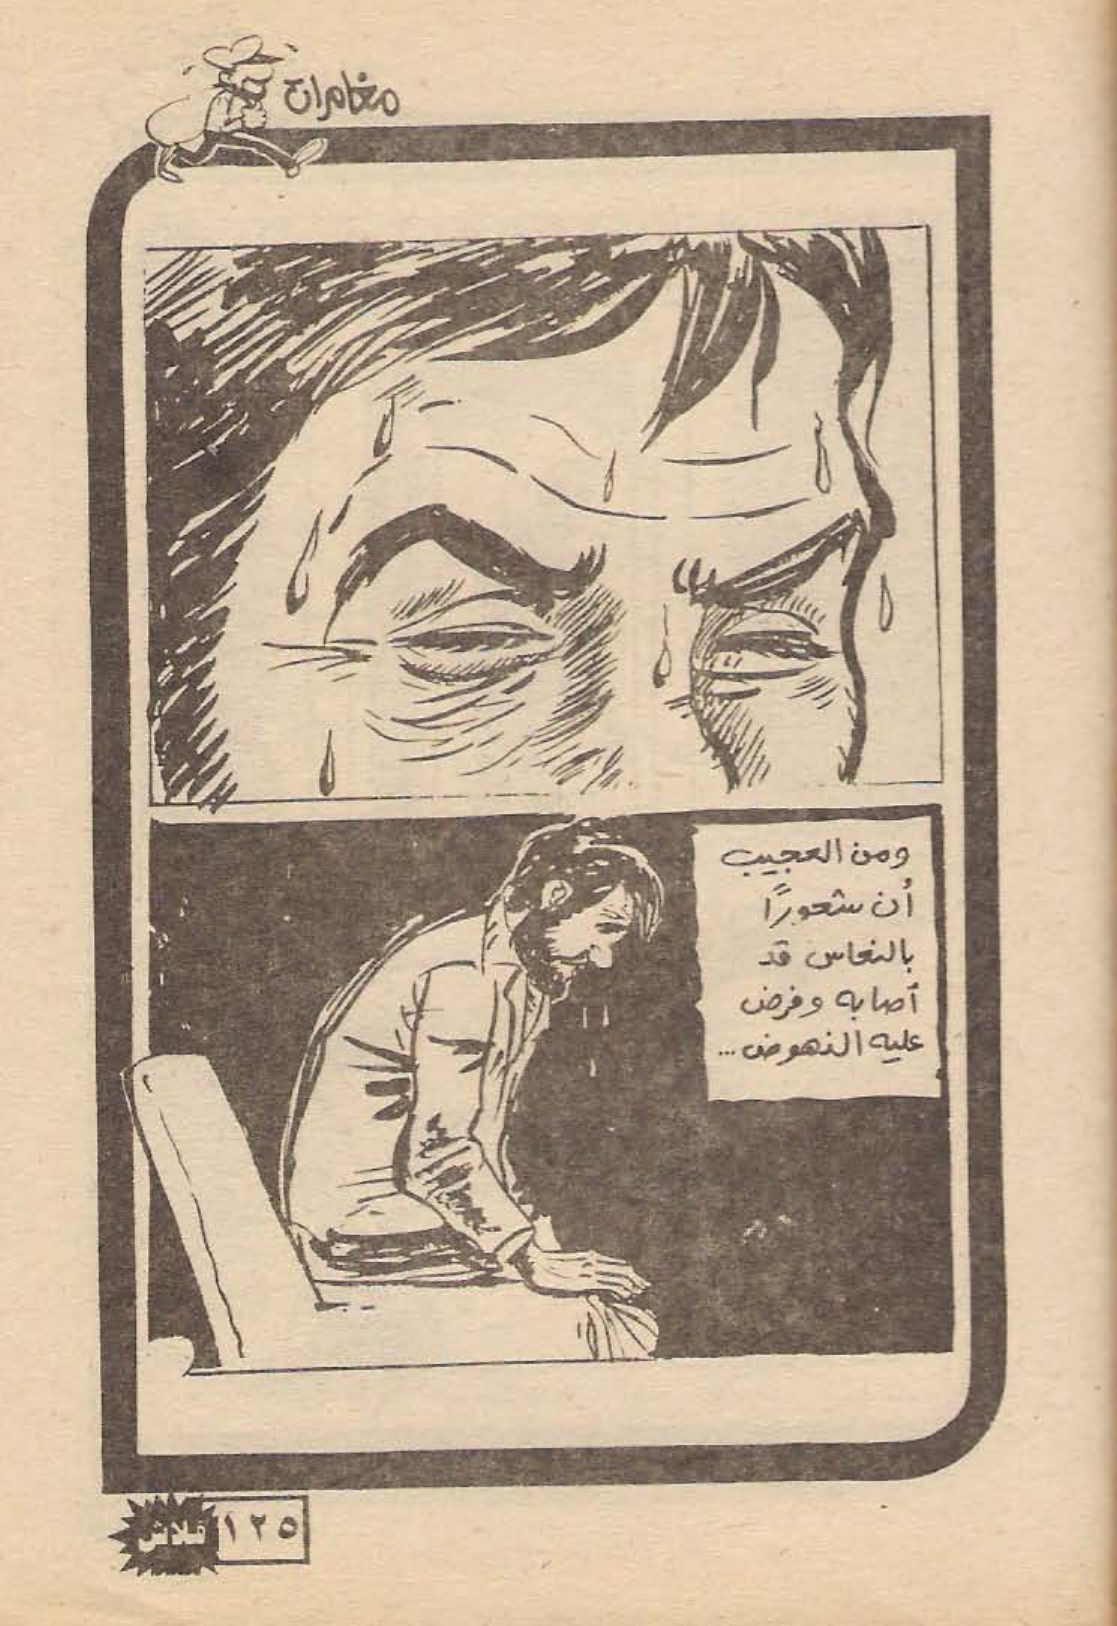 مغامرات
ومن العجيب
أن شعورًا
بالنعاس قد
أصابه وفرض
عليه النهوض...
فلاش
١٢٥